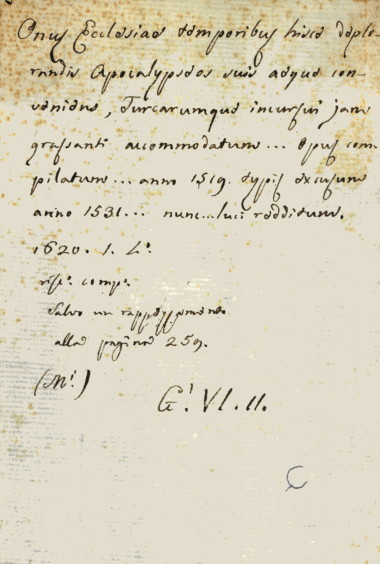 Onus Ecclesiae temporibus hisce deplo-
randis Apocalypseos suis aeque con-
veniens, Turcarumque incursui jam
grassanti accommodatum... Opus com-
pilatum... anno 1519. typis excusum
anno 1531... nunc...luci redditum.
1620. 1. Lº.
risº. compº.
Salvo un rappezzamento
alla pagina 259.
(Mⁱ.)
Gⁱ. VI. 11.